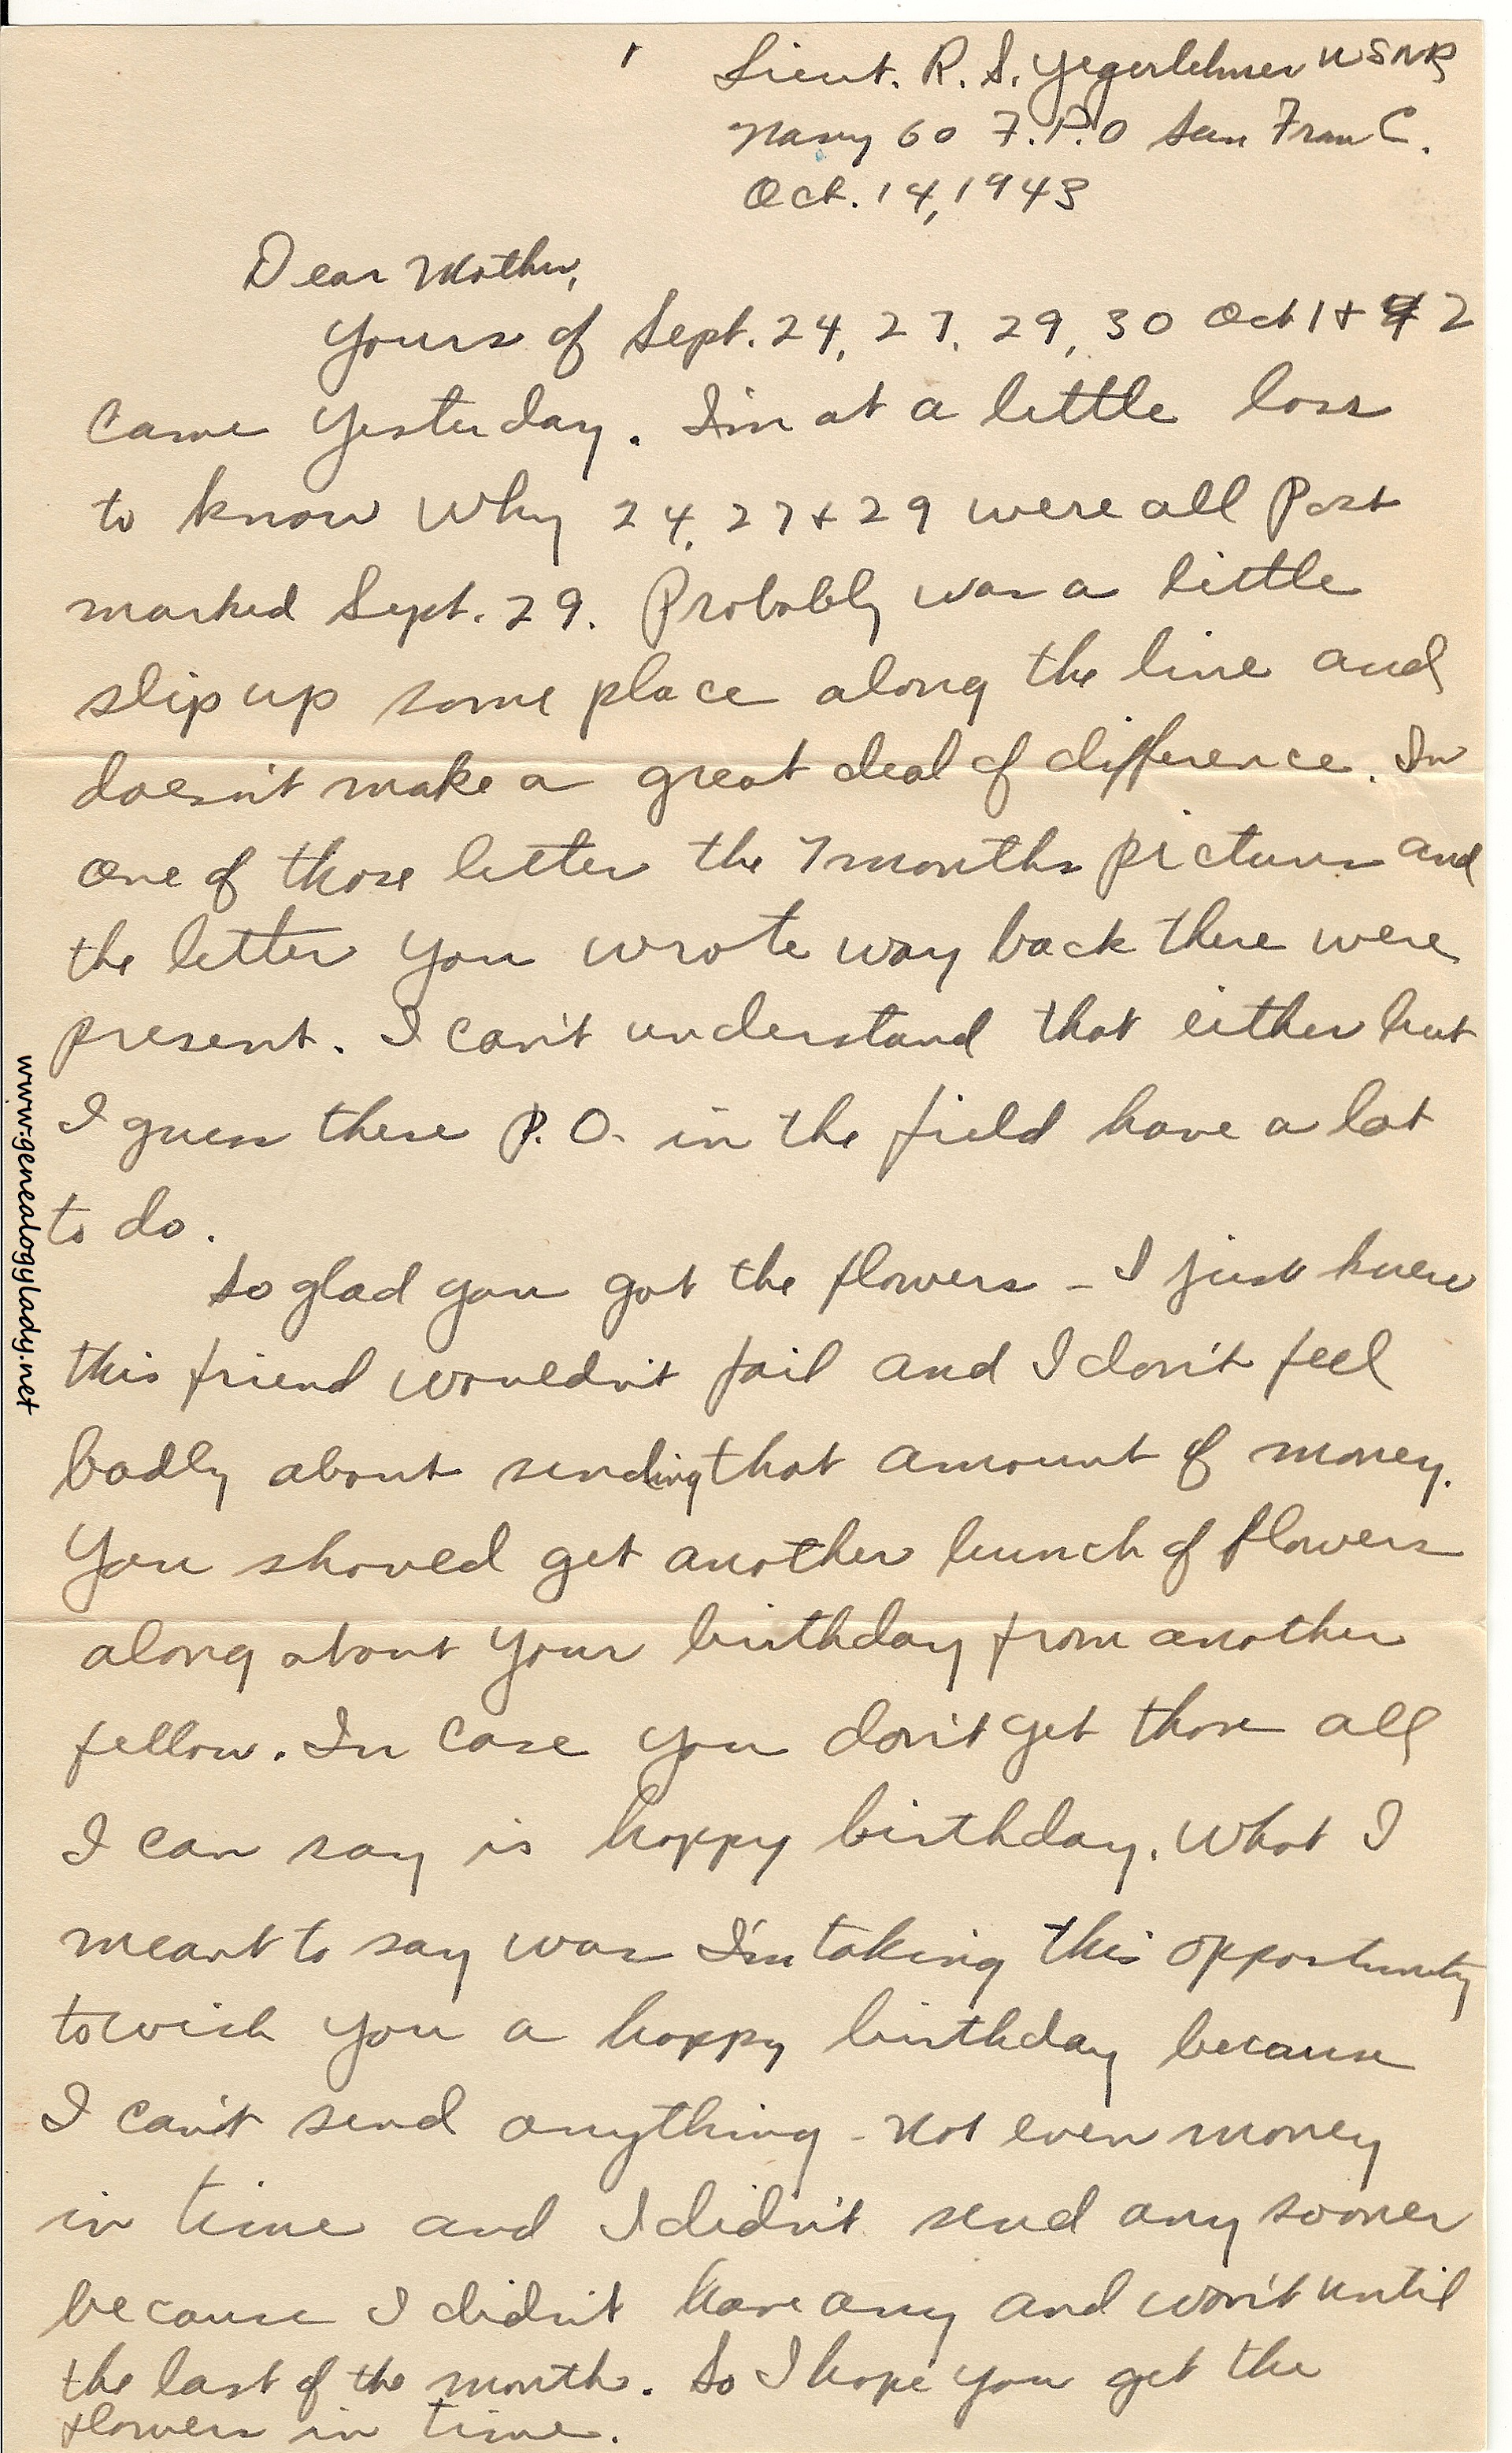 1
Lieut. R. S. Yegerlehner USNR
Navy 60 F.P.O San Fran C.
Oct. 14, 1943
Dear Mother,
Yours of Sept. 24, 27, 29, 30 Oct 1 + 2
came yesterday. I'm at a little loss
to know why 24, 27 + 29 were all Post
marked Sept. 29. Probably was a little
slip up some place along the line and
doesn't make a great deal of difference. In
one of those letter the 7 months pictures and
the letter you wrote way back there were
present. I can't understand that either but
I guess these P.O. in the field have a lot
to do.
So glad you got the flowers - I just knew
this friend wouldn't fail and I don't feel
badly about sending that amount of money.
You should get another bunch of flowers
along about your birthday from another
fellow. In case you don't get those all
I can say is happy birthday. What I
meant to say was I'm taking this opportunity
to wish you a happy birthday because
I can't send anything - not even money
in time and I didn't send any sooner
because I didn't have any and won't until
the last of the month. So I hope you get the
flowers in time.
www.genealogylady.net